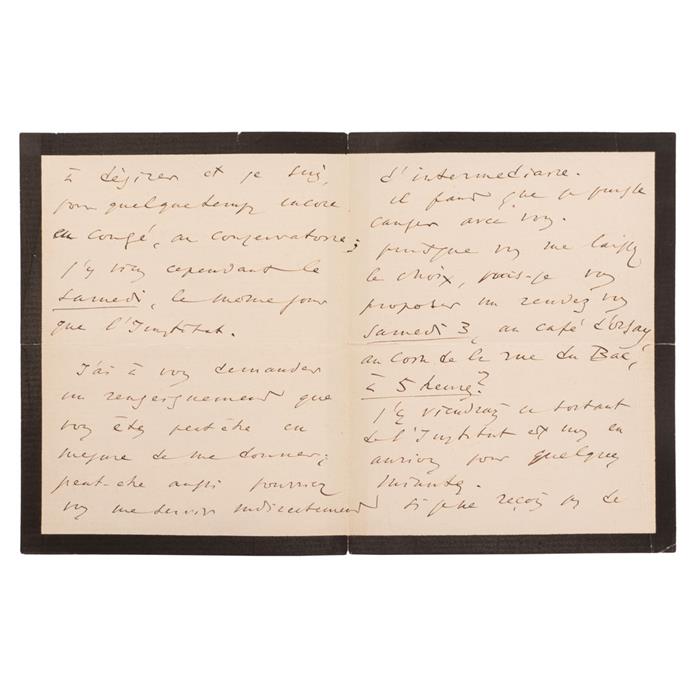 à désirer et je suis,
pour quelque temps encore
en congé, au conservatoire ;
j'y viens cependant le
samedi, le même jour
que l'Institut.
J'ai à vous demander
un renseignement que
vous êtes peut-être en
mesure de me donner ;
peut-être aussi pourriez
vous me servir indirectement
d'intermédiaire.
il faut que je puisse
causer avec vous.
puisque vous me laissez
le choix, puis-je vous
proposer un rendez vous
samedi 3, au café d'Orsay,
au coin de la rue du Bac,
à 5 heures ?
j'y viendrai en sortant
de l'Institut et nous en
aurions pour quelques
instants.
si je ne reçois pas de